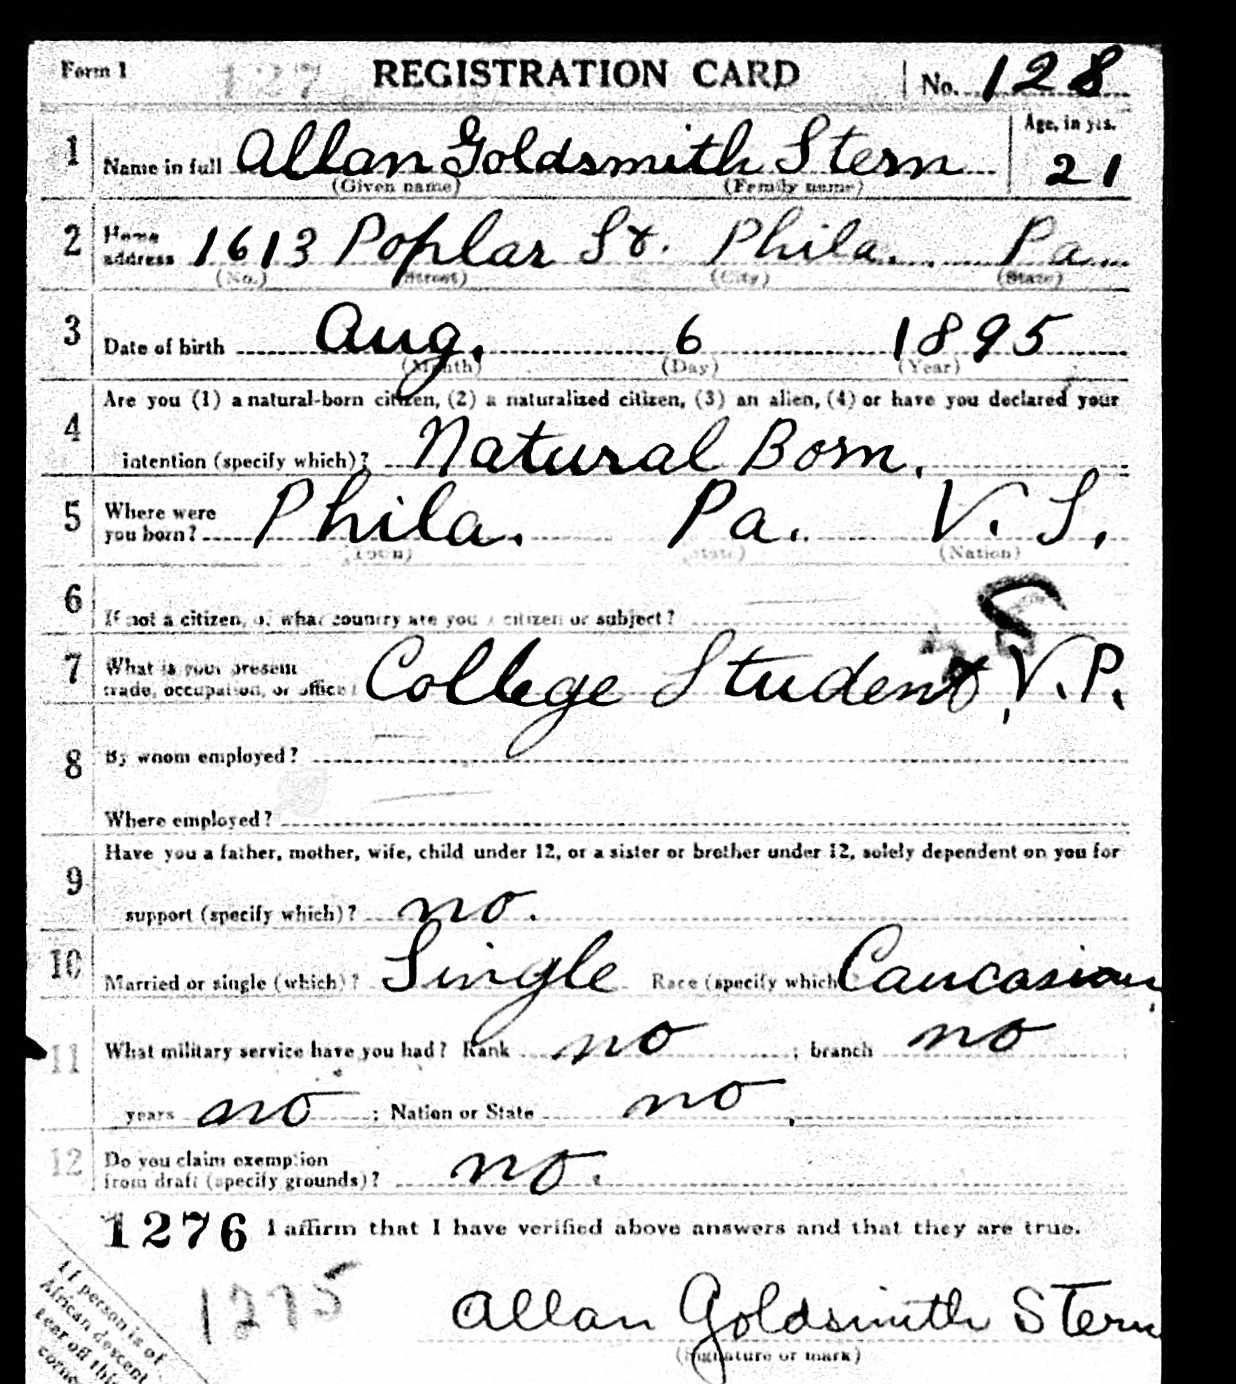 Form 1 127 REGISTRATION CARD No. 128
1 Name in full Allan Goldsmith Stern Age, in yrs. 21
(Given name) (Family name)
2 Home address 1613 Poplar St. Phila. Pa.
(No.) (Street) (City) (State)
3 Date of birth Aug. 6 1895
(Month) (Day) (Year)
4 Are you (1) a natural-born citizen, (2) a naturalized citizen, (3) an alien, (4) or have you declared your
intention (specify which)? Natural Born.
5 Where were
you born? Phila. Pa. U. S.
(Town) (State) (Nation)
6 If not a citizen, of what country are you a citizen or subject?
7 What is your present
trade, occupation, or office? College Student, U.P.
8 By whom employed?
Where employed?
9 Have you a father, mother, wife, child under 12, or a sister or brother under 12, solely dependent on you for
support (specify which)? no.
10 Married or single (which)? Single Race (specify which)? Caucasian
11 What military service have you had? Rank no ; branch no
years no ; Nation or State no
12 Do you claim exemption
from draft (specify grounds)? no.
1276 I affirm that I have verified above answers and that they are true.
1275
Allan Goldsmith Stern
(Signature or mark)
If person is of
African descent
tear off this